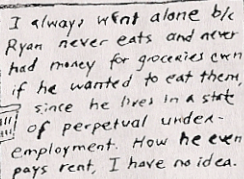 I always went alone b/c
Ryan never eats and never
had money for groceries even
if he wanted to eat them,
since he lives in a state
of perpetual under-
employment. How he even
pays rent, I have no idea.